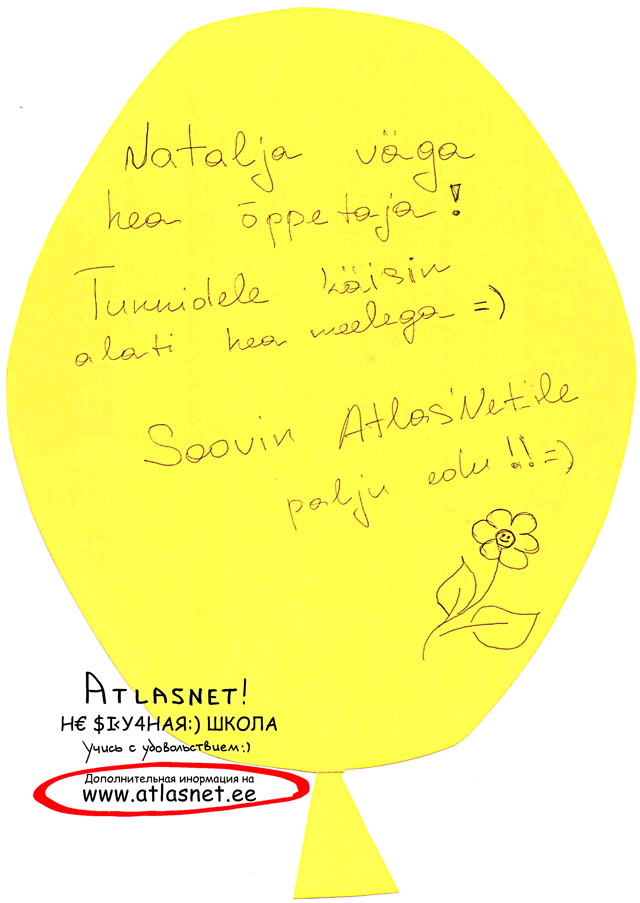 Natalja väga
hea õppetaja!
Tunnidele käisin
alati hea meelega =)
Soovin Atlas'Net'ile
palju edu!!=)
ATLASNET!
Н€ $I<У4НАЯ:) ШКОЛА
Учись с удовольствием:)
Дополнительная инормация на
www.atlasnet.ee